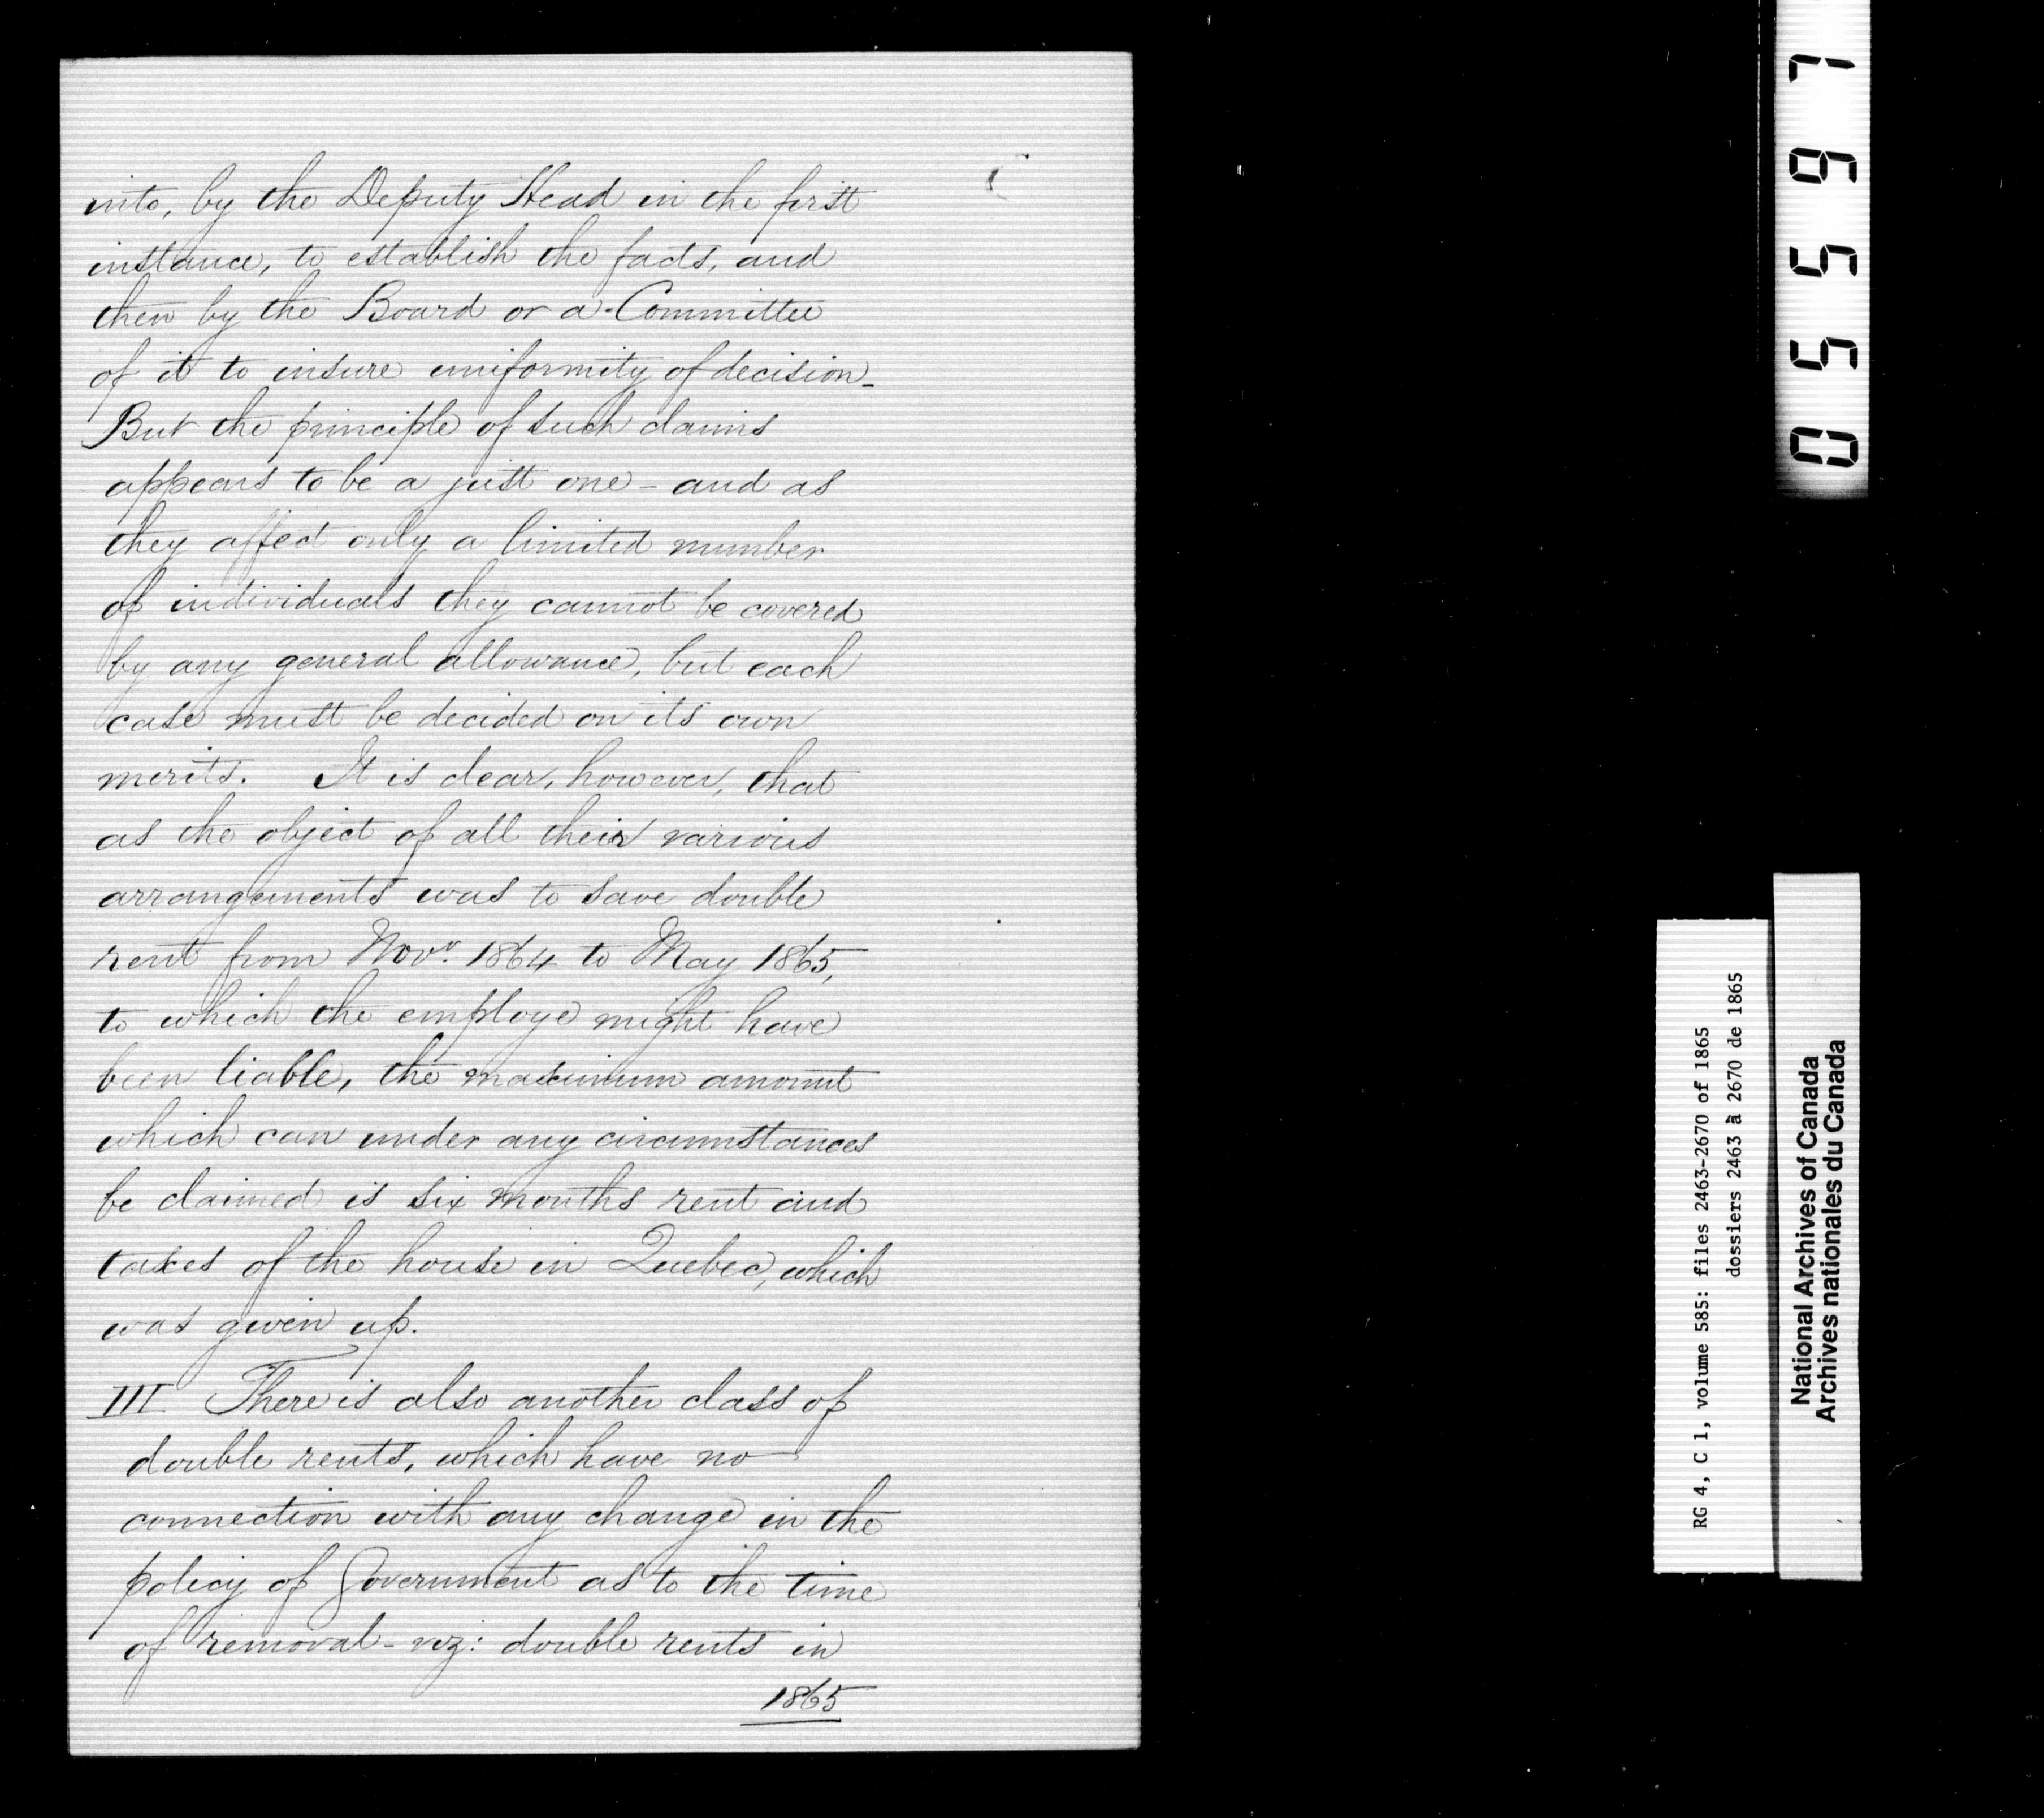 into, by the Deputy Head in the first
instance, to establish the facts, and
then by the Board or a Committee
of it to insure uniformity of decision_
But the principle of such claims
appears to be a just one - and as
they affect only a limited number
of individuals they cannot be covered
by any general allowance, but each
case must be decided on its own
merits. It is clear, however, that
as the object of all their various
arrangements was to save double
rent from Novr. 1864 to May 1865,
to which the employe might have
been liable, the maximum amount
which can under any circumstances
be claimed is six months rent and
taxes of the house in Quebec, which
was given up.
III There is also another class of
double rents, which have no
connection with any change in the
policy of Government as to the time
of removal - viz: double rents in
1865
05597
RG 4, C 1, volume 585: files 2463-2670 of 1865
dossiers 2463 à 2670 de 1865
National Archives of Canada
Archives nationales du Canada